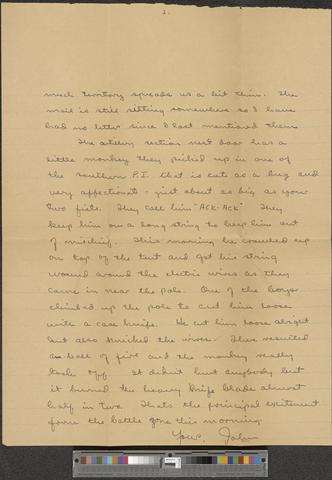 2.
much territory spreads us a bit thin. The
mail is still sitting somewhere so I have
had no letter since I last mentioned them
The artillery section next door has a
little monkey they picked up in one of
the southern P.I. that is cute as a bug and
very affectionate - just about as big as your
two fists. They call him "ACK-ACK". They
keep him on a long string to keep him out
of mischief. This morning he crawled up
on top of the tent and got his string
wound around the electric wires as they
came in near the pole. One of the boys
climbed up the pole to cut him loose
with a case knife. He cut him loose alright
but also knicked the wires. There resulted
a ball of fire and the monkey really
took off. It didn't hurt anybody but
it burned the heavy knife blade almost
half in two. Thats the principal excitement
from the battle zone this morning
Yours, John